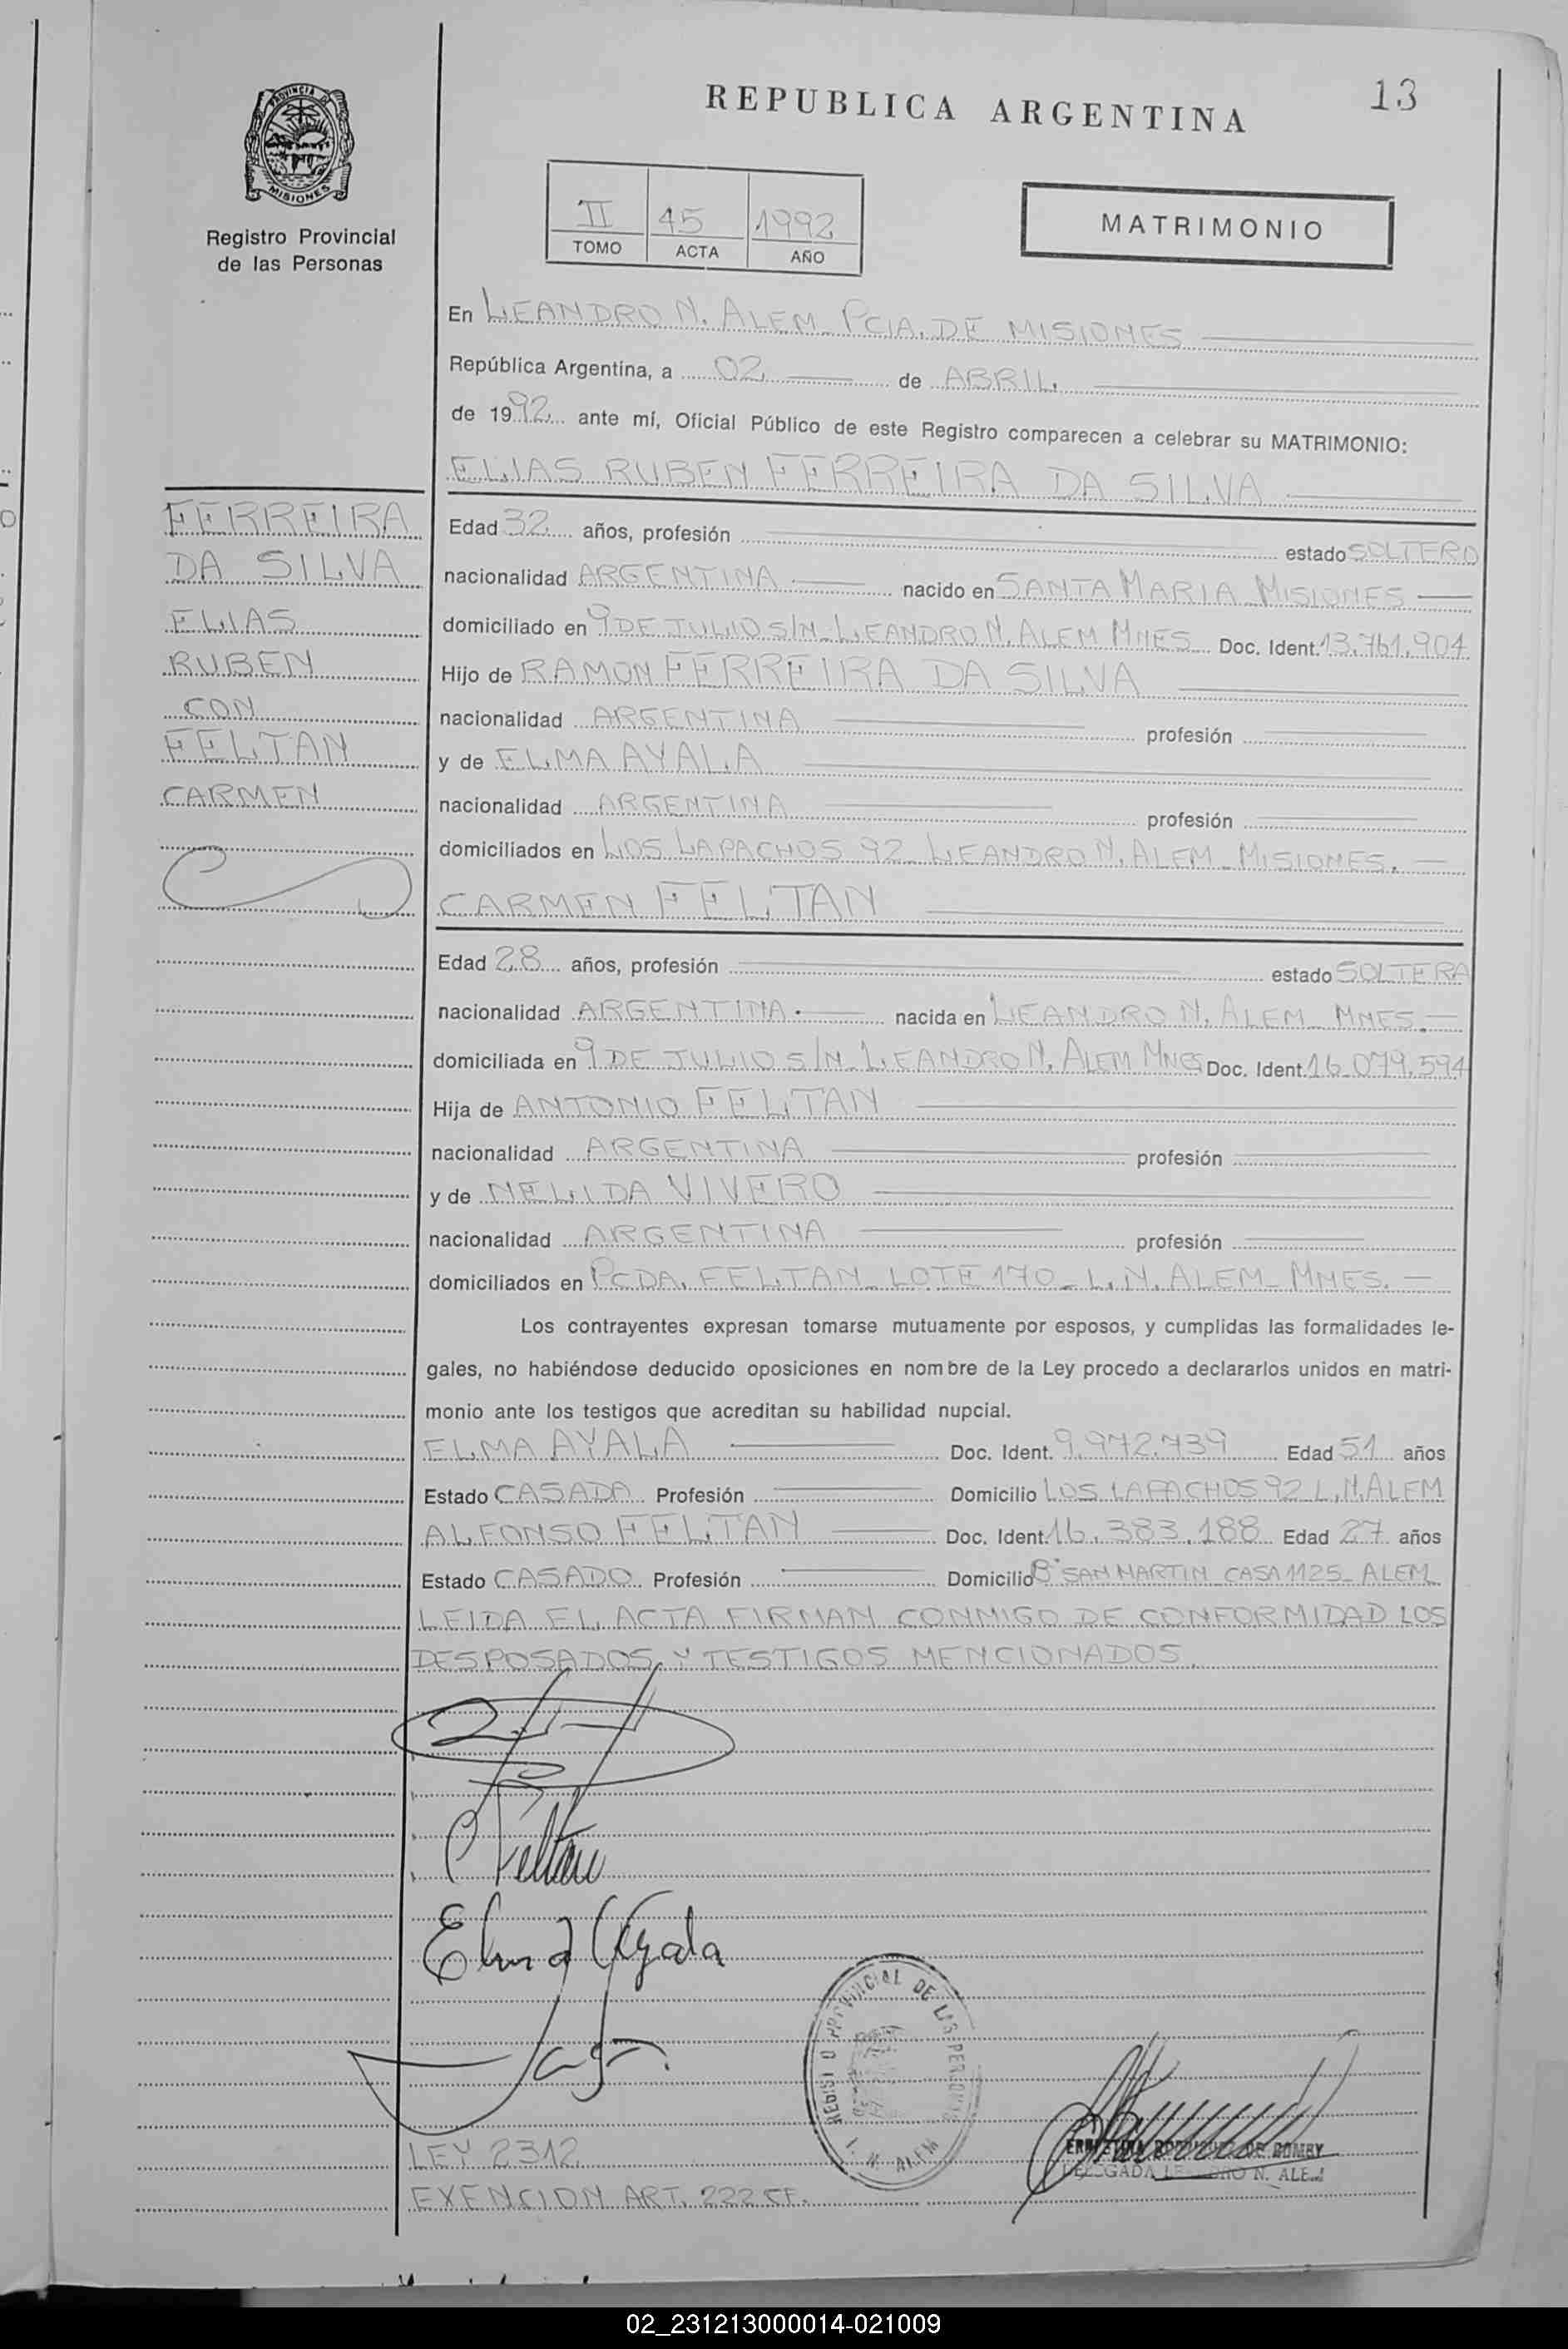 13
REPUBLICA ARGENTINA
PROVINCIA DE
MISIONES
Registro Provincial
de las Personas
II 45 1992
TOMO ACTA AÑO
MATRIMONIO
En LEANDRO N. ALEM_ PCIA. DE MISIONES
República Argentina, a 02 de ABRIL.
de 1992 ante mí, Oficial Público de este Registro comparecen a celebrar su MATRIMONIO:
ELIAS RUBEN FERREIRA DA SILVA
FERREIRA
DA SILVA
ELIAS
RUBEN
CON
FELTAN
CARMEN
Edad 32 años, profesión estado SOLTERO
nacionalidad ARGENTINA nacido en SANTA MARIA_MISIONES
domiciliado en 9 DE JULIO S/N_LEANDRO N. ALEM MNES Doc. Ident. 13.761.904
Hijo de RAMON FERREIRA DA SILVA
nacionalidad ARGENTINA profesión
y de ELMA AYALA
nacionalidad ARGENTINA profesión
domiciliados en LOS LAPACHOS 92_LEANDRO N. ALEM_MISIONES.
CARMEN FELTAN
Edad 28 años, profesión estado SOLTERA
nacionalidad ARGENTINA. nacida en LEANDRO N. ALEM_ MNES.
domiciliada en 9 DE JULIO S/N_LEANDRO N. ALEM MNES Doc. Ident. 16.079.594
Hija de ANTONIO FELTAN
nacionalidad ARGENTINA profesión
y de NELIDA VIVERO
nacionalidad ARGENTINA profesión
domiciliados en PCDA. FELTAN_LOTE 170_L.N. ALEM_MNES.
Los contrayentes expresan tomarse mutuamente por esposos, y cumplidas las formalidades le-
gales, no habiéndose deducido oposiciones en nombre de la Ley procedo a declararlos unidos en matri-
monio ante los testigos que acreditan su habilidad nupcial.
ELMA AYALA Doc. Ident. 9.972.739 Edad 51 años
Estado CASADA Profesión Domicilio LOS LAPACHOS 92 L.N.ALEM
ALFONSO FELTAN Doc. Ident. 16.383.188 Edad 27 años
Estado CASADO Profesión Domicilio B° SAN MARTIN_CASA 1125_ALEM
LEIDA EL ACTA FIRMAN CONMIGO DE CONFORMIDAD LOS
DESPOSADOS Y TESTIGOS MENCIONADOS.
C Feltan
Elma Ayala
REGISTRO PROVINCIAL DE LAS PERSONAS
L. N. ALEM
DELEGADA LEANDRO N. ALEM
LEY 2312
EXENCION ART. 222 CF.
02_231213000014-021009